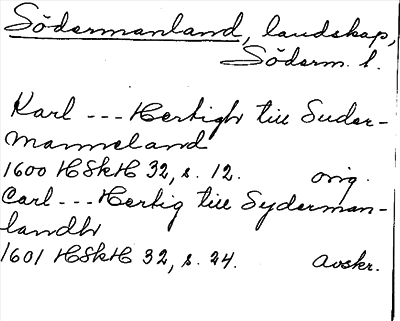 Södermanland, landskap,
Söderm. l.
Karl --- Hertigh till Suder-
manneland
1600 HSkH 32, s. 12. orig.
Carl --- Hertig till Syderman-
landh
1601 HSkH 32, s. 24. avskr.